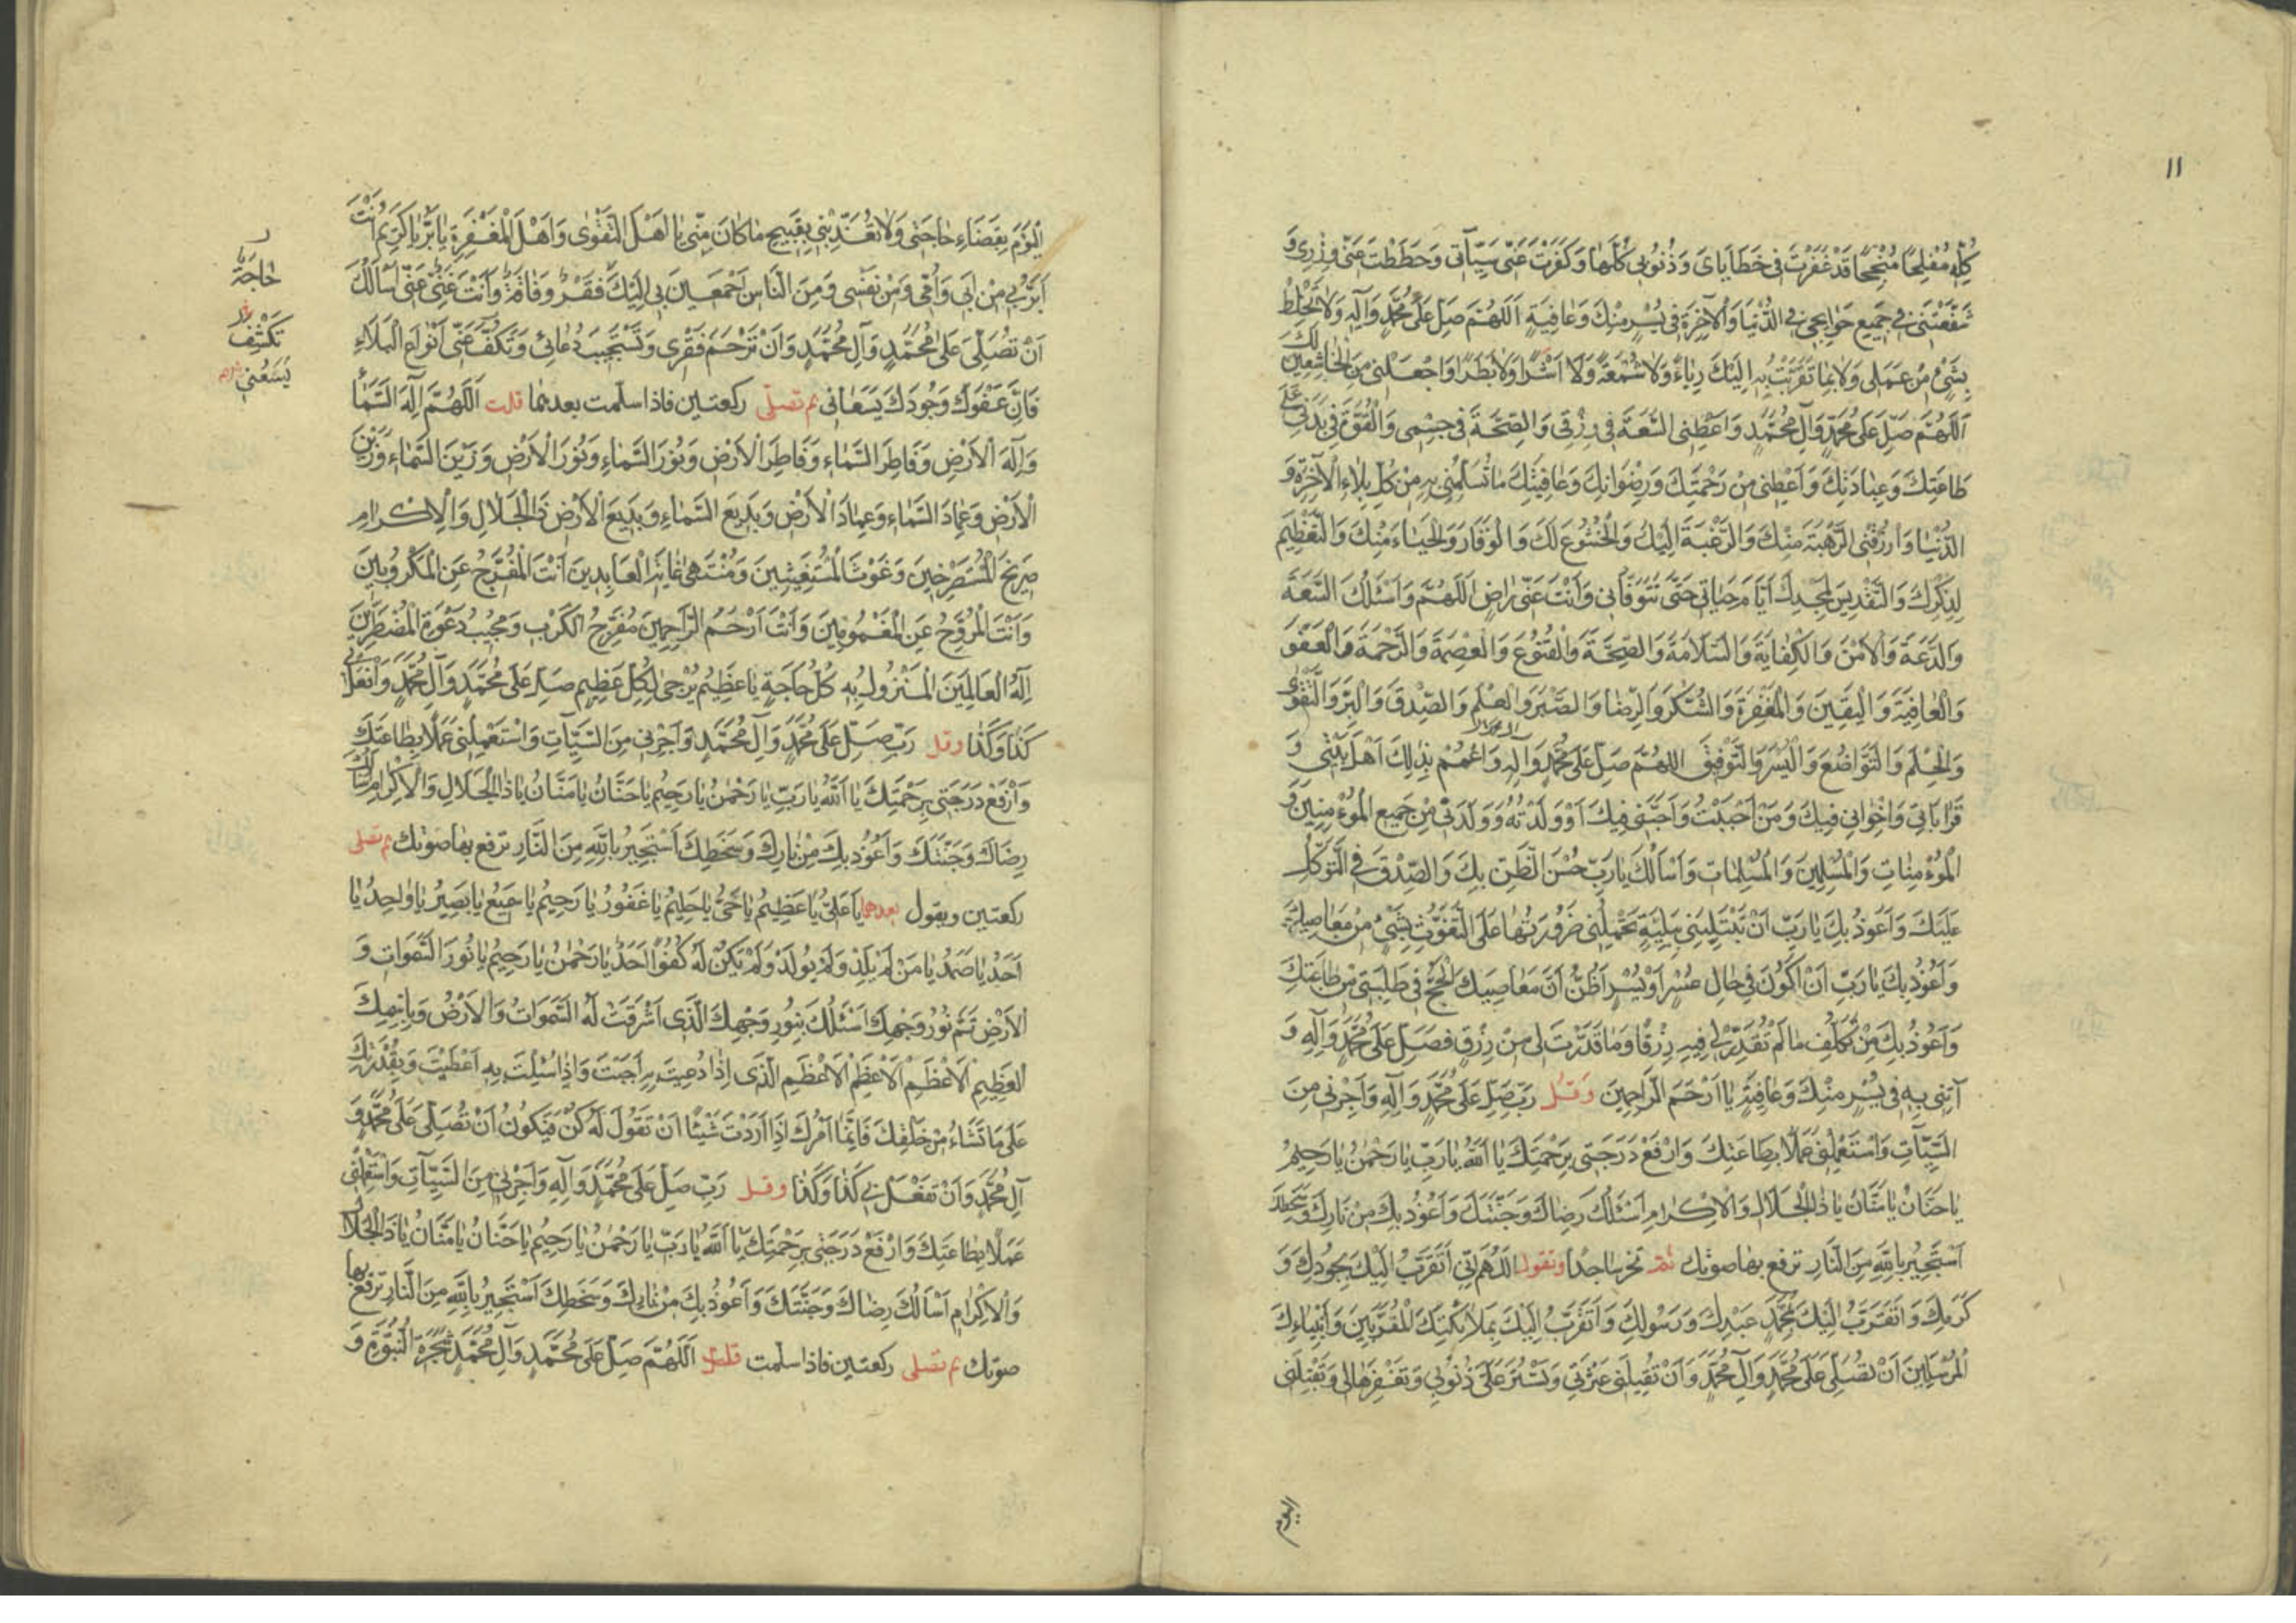 ١١
كُلِّهِ مُفْلِحًا مُنْجِحًا قَدْ غَفَرْتَ لي خَطَايَايَ وَذُنُوبي كُلَّهَا وَكَفَّرْتَ عَنّي سَيِّآتي وَحَطَطْتَ عَنّي وِزْري وَ
شَفَّعْتَني في جَميعِ حَوَائِجي في الدُّنْيَا وَالْآخِرَةِ في يُسْرٍ مِنْكَ وَعَافِيَةٍ اَللّهُمَّ صَلِّ عَلى مُحَمَّدٍ وَآلِهِ وَلا تَخْلِطْ
بِشَيْءٍ مِنْ عَمَلي وَلا بِمَا تَقَرَّبْتُ بِهِ اِلَيْكَ رِيَاءً وَلا سُمْعَةً وَلا اَشَرًا وَلا بَطَرًا وَاجْعَلْني مِنَ الْخَاشِعينَ لَكَ
اَللّهُمَّ صَلِّ عَلى مُحَمَّدٍ وَآلِ مُحَمَّدٍ وَاَعْطِني السَّعَةَ في رِزْقي وَالصِّحَّةَ في جِسْمي وَالْقُوَّةَ في بَدَني عَلى
طَاعَتِكَ وَعِبَادَتِكَ وَاَعْطِني مِنْ رَحْمَتِكَ وَرِضْوَانِكَ وَعَافِيَتِكَ مَا تُسَلِّمُني بِهِ مِنْ كُلِّ بَلاءِ الْآخِرَةِ وَ
الدُّنْيَا وَارْزُقْني الرَّهْبَةَ مِنْكَ وَالرَّغْبَةَ اِلَيْكَ وَالْخُشُوعَ لَكَ وَالْوَقَارَ وَالْحَيَاءَ مِنْكَ وَالتَّعْظيمَ
لِذِكْرِكَ وَالتَّقْديسَ لِمَجْدِكَ اَيَّامَ حَيَاتي حَتّى تَتَوَفَّاني وَاَنْتَ عَنّي رَاضٍ اَللّهُمَّ وَاَسْئَلُكَ السَّعَةَ
وَالدَّعَةَ وَالْاَمْنَ وَالْكِفَايَةَ وَالسَّلامَةَ وَالصِّحَّةَ وَالْقُنُوعَ وَالْعِصْمَةَ وَالرَّحْمَةَ وَالْعَفْوَ
وَالْعَافِيَةَ وَالْيَقينَ وَالْمَغْفِرَةَ وَالشُّكْرَ وَالرِّضَا وَالصَّبْرَ وَالْعِلْمَ وَالصِّدْقَ وَالْبِرَّ وَالتَّقْوى
وَالْحِلْمَ وَالتَّوَاضُعَ وَالْيُسْرَ وَالتَّوْفيقَ اللهُمَّ صَلِّ عَلى مُحَمَّدٍ وَآلِهِ وَاعْمُمْ بِذلِكَ اَهْلَ بَيْتي وَ
قَرَابَاتي وَاِخْوَاني فيكَ وَمَنْ اَحْبَبْتُ وَاَحَبَّني فيكَ اَوْ وَلَدْتُهُ وَوَلَدَني مِنْ جَميعِ الْمُؤْمِنينَ وَ
الْمُؤْمِنَاتِ وَالْمُسْلِمينَ وَالْمُسْلِمَاتِ وَاَسْاَلُكَ يَا رَبِّ حُسْنَ الظَّنِّ بِكَ وَالصِّدْقَ في التَّوَكُّلِ
عَلَيْكَ وَاَعُوذُ بِكَ يَا رَبِّ اَنْ تَبْتَلِيَني بِبَلِيَّةٍ تَحْمِلُني ضَرُورَتُهَا عَلَى التَّغَوُّثِ بِشَيْءٍ مِنْ مَعَاصيكَ
وَاَعُوذُ بِكَ يَا رَبِّ اَنْ اَكُونَ في حَالِ عُسْرٍ اَوْ يُسْرٍ اَظُنُّ اَنَّ مَعَاصيكَ اَنْجَحُ في طَلِبَتي مِنْ طَاعَتِكَ
وَاَعُوذُ بِكَ مِنْ تَكَلُّفِ مَا لَمْ تُقَدِّرْ لي فيهِ رِزْقًا وَمَا قَدَّرْتَ لي مِنْ رِزْقٍ فَصَلِّ عَلى مُحَمَّدٍ وَآلِهِ وَ
آتِني بِهِ في يُسْرٍ مِنْكَ وَعَافِيَةٍ يَا اَرْحَمَ الرَّاحِمينَ وَقُل رَبِّ صَلِّ عَلى مُحَمَّدٍ وَآلِهِ وَاَجِرْني مِنَ
السَّيِّآتِ وَاسْتَعْمِلْني عَمَلًا بِطَاعَتِكَ وَارْفَعْ دَرَجَتي بِرَحْمَتِكَ يَا اَللهُ يَا رَبِّ يَا رَحْمنُ يَا رَحيمُ
يَا حَنَّانُ يَا مَنَّانُ يَا ذَا الْجَلالِ وَالْاِكْرَامِ اَسْئَلُكَ رِضَاكَ وَجَنَّتَكَ وَاَعُوذُ بِكَ مِنْ نَارِكَ وَسَخَطِكَ
اَسْتَجيرُ بِاللهِ مِنَ النَّارِ ترفع بها صوتك ثم تخر ساجدا وتقول اَللّهُمَّ اِنّي اَتَقَرَّبُ اِلَيْكَ بِجُودِكَ وَ
كَرَمِكَ وَاَتَقَرَّبُ اِلَيْكَ بِمُحَمَّدٍ عَبْدِكَ وَرَسُولِكَ وَاَتَقَرَّبُ اِلَيْكَ بِمَلائِكَتِكَ الْمُقَرَّبينَ وَاَنْبِيَاءِكَ
الْمُرْسَلينَ اَنْ تُصَلِّيَ عَلى مُحَمَّدٍ وَآلِ مُحَمَّدٍ وَاَنْ تُقيلَني عَثْرَتي وَتَسْتُرَ عَلَيَّ ذُنُوبي وَتَغْفِرَهَا لي وَتَقْلِبَني
اليوم
الْيَوْمَ بِقَضَاءِ حَاجَتي وَلا تُعَذِّبْني بِقَبيحِ مَا كَانَ مِنّي يَا اَهْلَ التَّقْوى وَاَهْلَ الْمَغْفِرَةِ يَا بَرُّ يَا كَريمُ اَنْتَ
اَبَرُّ بي مِنْ اَبي وَاُمّي وَمِنْ نَفْسي وَمِنَ النَّاسِ اَجْمَعينَ بي اِلَيْكَ فَقْرٌ وَفَاقَةٌ وَاَنْتَ غَنِيٌّ عَنّي اَسْاَلُكَ
اَنْ تُصَلِّيَ عَلى مُحَمَّدٍ وَآلِ مُحَمَّدٍ وَاَنْ تَرْحَمَ فَقْري وَتَسْتَجيبَ دُعَائي وَتَكُفَّ عَنّي اَنْوَاعَ الْبَلاءِ
فَاِنَّ عَفْوَكَ وَجُودَكَ يَسَعَاني ثم تصلّي ركعتين فاذا سلّمت بعدهما قلت اَللّهُمَّ اِلهَ السَّمَاءِ
وَاِلهَ الْاَرْضِ وَفَاطِرَ السَّمَاءِ وَفَاطِرَ الْاَرْضِ وَنُورَ السَّمَاءِ وَنُورَ الْاَرْضِ وَزَيْنَ السَّمَاءِ وَزَيْنَ
الْاَرْضِ وَعِمَادَ السَّمَاءِ وَعِمَادَ الْاَرْضِ وَبَديعَ السَّمَاءِ وَبَديعَ الْاَرْضِ ذَا الْجَلالِ وَالْاِكْرَامِ
صَريخَ الْمُسْتَصْرِخينَ وَغَوْثَ الْمُسْتَغيثينَ وَمُنْتَهى غَايَةِ الْعَابِدينَ اَنْتَ الْمُفَرِّجُ عَنِ الْمَكْرُوبينَ
وَاَنْتَ الْمُرَوِّحُ عَنِ الْمَغْمُومينَ وَاَنْتَ اَرْحَمُ الرَّاحِمينَ مُفَرِّجُ الْكَرْبِ وَمُجيبُ دَعْوَةِ الْمُضْطَرّينَ
اِلهُ الْعَالَمينَ الْمَنْزُولُ بِهِ كُلُّ حَاجَةٍ يَا عَظيمُ يُرْجى لِكُلِّ عَظيمٍ صَلِّ عَلى مُحَمَّدٍ وَآلِ مُحَمَّدٍ وَافْعَلْ بي
كَذَا وَكَذَا وقل رَبِّ صَلِّ عَلى مُحَمَّدٍ وَآلِ مُحَمَّدٍ وَاَجِرْني مِنَ السَّيِّآتِ وَاسْتَعْمِلْني عَمَلًا بِطَاعَتِكَ
وَارْفَعْ دَرَجَتي بِرَحْمَتِكَ يَا اَللهُ يَا رَبِّ يَا رَحْمنُ يَا رَحيمُ يَا حَنَّانُ يَا مَنَّانُ يَا ذَا الْجَلالِ وَالْاِكْرَامِ اَسْاَلُكَ
رِضَاكَ وَجَنَّتَكَ وَاَعُوذُ بِكَ مِنْ نَارِكَ وَسَخَطِكَ اَسْتَجيرُ بِاللهِ مِنَ النَّارِ ترفع بها صوتك ثم تصلى
ركعتين ويقول بعدهما يَا عَلِيُّ يَا عَظيمُ يَا حَيُّ يَا حَليمُ يَا غَفُورُ يَا رَحيمُ يَا سَميعُ يَا بَصيرُ يَا وَاحِدُ يَا
اَحَدُ يَا صَمَدُ يَا مَنْ لَمْ يَلِدْ وَلَمْ يُولَدْ وَلَمْ يَكُنْ لَهُ كُفُوًا اَحَدٌ يَا رَحْمنُ يَا رَحيمُ يَا نُورَ السَّموَاتِ وَ
الْاَرْضِ تَمَّ نُورُ وَجْهِكَ اَسْئَلُكَ بِنُورِ وَجْهِكَ الَّذي اَشْرَقَتْ لَهُ السَّموَاتُ وَالْاَرْضُ وَبِاسْمِكَ
الْعَظيمِ الْاَعْظَمِ الْاَعْظَمِ الْاَعْظَمِ الَّذي اِذَا دُعيتَ بِهِ اَجَبْتَ وَاِذَا سُئِلْتَ بِهِ اَعْطَيْتَ وَبِقُدْرَتِكَ
عَلى مَا تَشَاءُ مِنْ خَلْقِكَ فَاِنَّمَا اَمْرُكَ اِذَا اَرَدْتَ شَيْئًا اَنْ تَقُولَ لَهُ كُنْ فَيَكُونُ اَنْ تُصَلِّيَ عَلى مُحَمَّدٍ وَ
آلِ مُحَمَّدٍ وَاَنْ تَفْعَلَ بي كَذَا وَكَذَا وقل رَبِّ صَلِّ عَلى مُحَمَّدٍ وَآلِهِ وَاَجِرْني مِنَ السَّيِّآتِ وَاسْتَعْمِلْني
عَمَلًا بِطَاعَتِكَ وَارْفَعْ دَرَجَتي بِرَحْمَتِكَ يَا اَللهُ يَا رَبِّ يَا رَحْمنُ يَا رَحيمُ يَا حَنَّانُ يَا مَنَّانُ يَا ذَا الْجَلالِ
وَالْاِكْرَامِ اَسْاَلُكَ رِضَاكَ وَجَنَّتَكَ وَاَعُوذُ بِكَ مِنْ نَارِكَ وَسَخَطِكَ اَسْتَجيرُ بِاللهِ مِنَ النَّارِ ترفع بها
صوتك ثم تصلى ركعتين فاذا سلّمت قلت اَللّهُمَّ صَلِّ عَلى مُحَمَّدٍ وَآلِ مُحَمَّدٍ شَجَرَةِ النُّبُوَّةِ وَ
حَاجَة
تَكْشِفَ
يَسَعُني